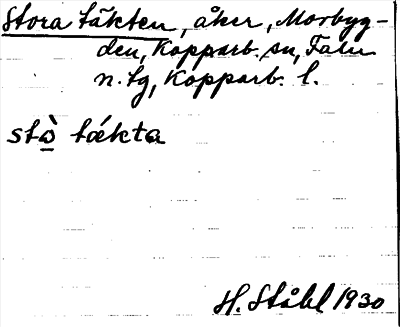 Stora täkten, åker, Morbyg-
den, Kopparb. sn, Falu
n. tg, Kopparb. l.
stɷ̀ tǽkta
H. Ståhl 1930